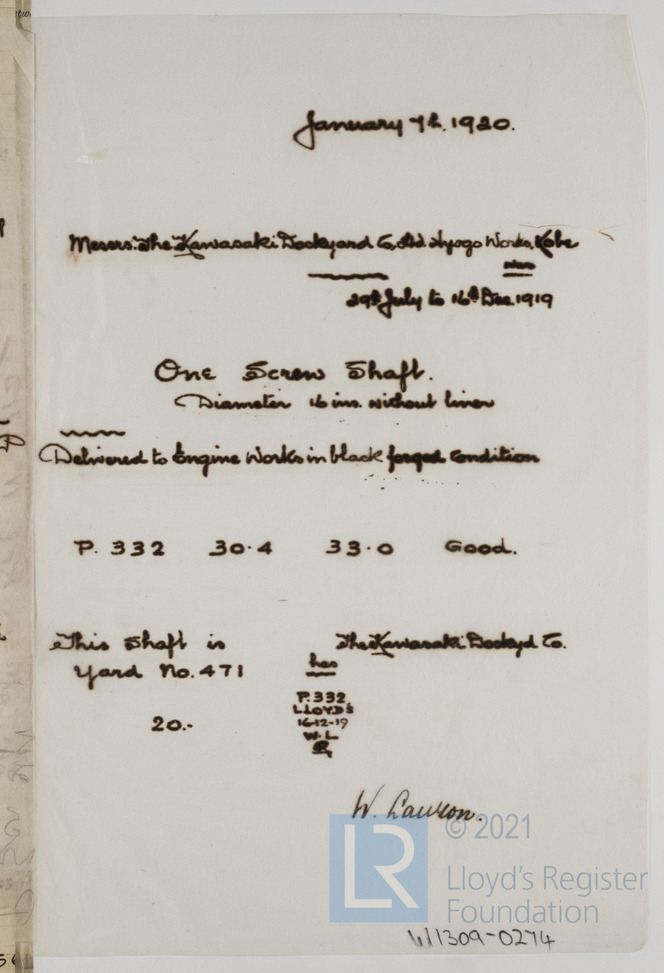 January 7th. 1920.
Messrs. The Kawasaki Dockyard Co, Ltd. Hyogo Works, Kobe
was
29th July to 16th Dec. 1919
One Screw Shaft.
Diameter 16 ins. without liner
Delivered to Engine Works in black forged condition
P. 332 30.4 33.0 Good.
This shaft is The Kawasaki Dockyd Co.
Yard No. 471 has
P. 332
LLOYD'S
20.- 16-12-19
W. L
W. Lawson.
© 2021
LR
Lloyd's Register
Foundation
W1309-0274